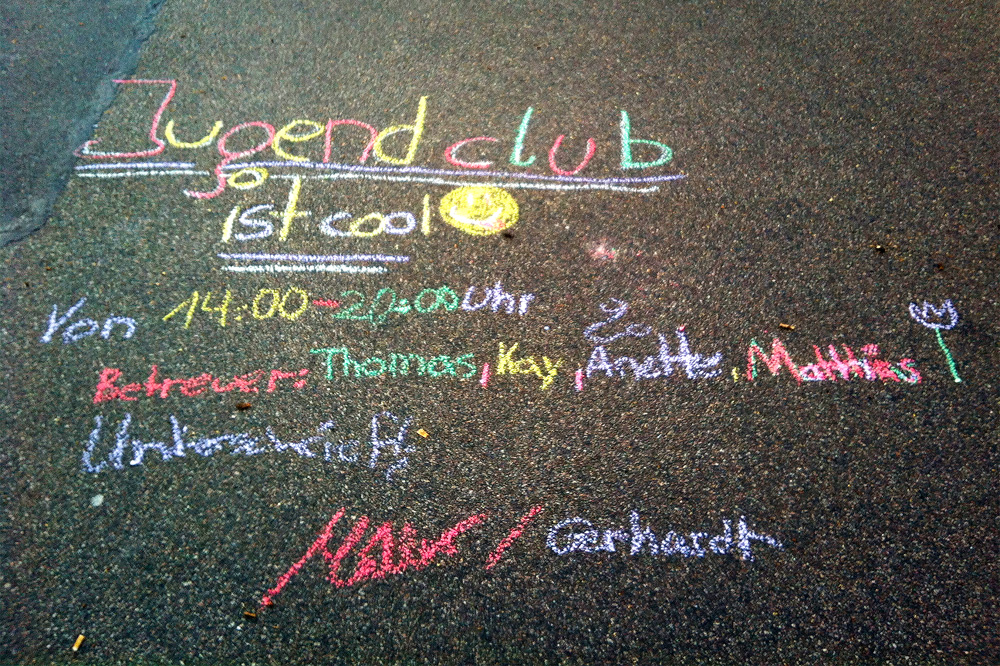 Jugendclub
ist cool
Von 14:00-20:00 Uhr
Betreuer: Thomas, Kay, Anette, Matthias
Unterschrift
/ Gerhardt